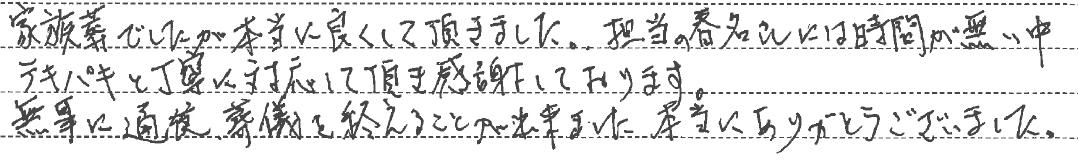 家族葬でしたが本当に良くして頂きました。担当の春名さんには時間が無い中
テキパキと丁寧に対応して頂き感謝しております。
無事に通夜、葬儀を終えることが出来ました 本当にありがとうございました。